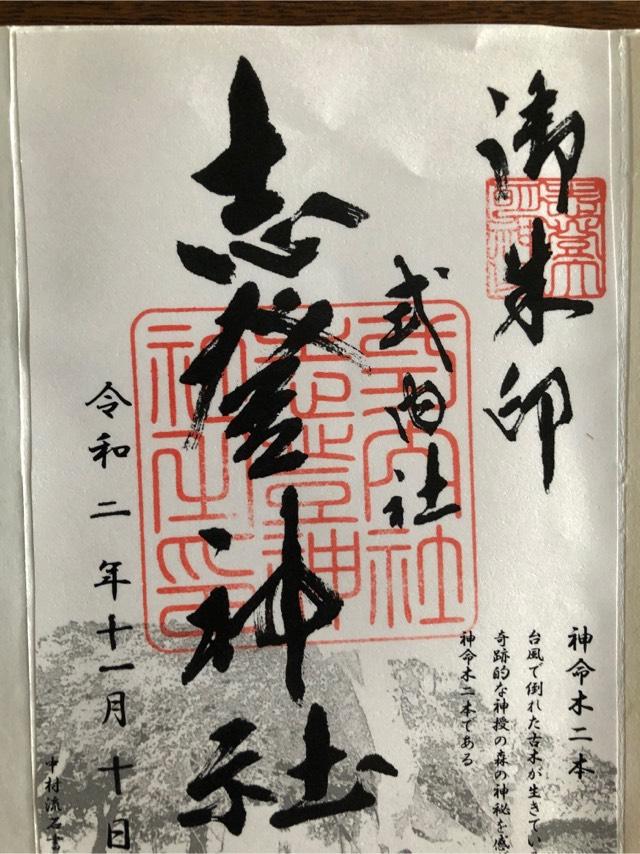 御朱印
式内社
志登神社
神命木二本
台風で倒れた古木が生きてい
奇跡的な神授の森の神秘を感
神命木二本である
令和二年十一月十日
中村流
式内社
志登神
社之印